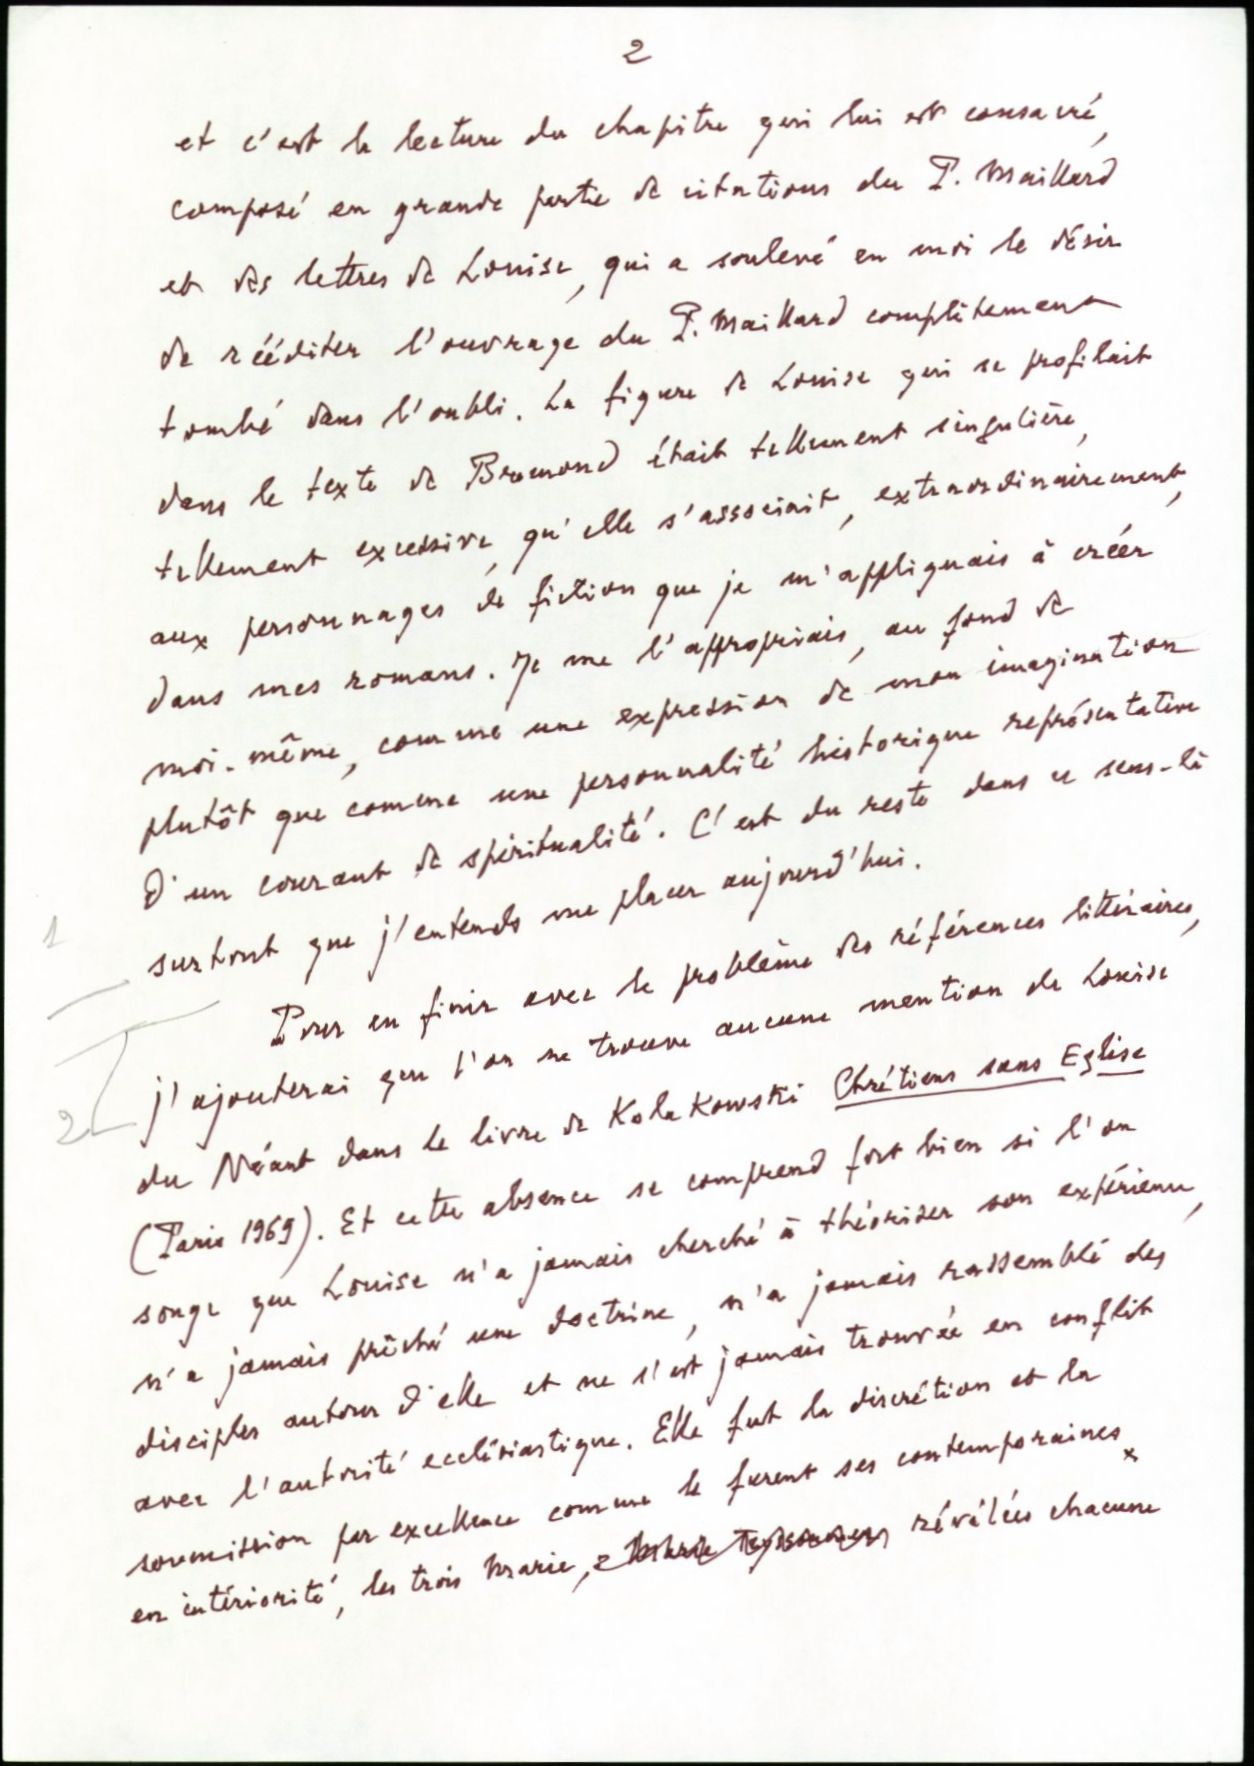 2
et c'est la lecture du chapitre qui lui est consacré,
composé en grande partie de citations du P. Maillard
et des lettres de Louise, qui a soulevé en moi le désir
de rééditer l'ouvrage du P. Maillard complètement
tombé dans l'oubli. La figure de Louise qui se profilait
dans le texte de Bremond était tellement singulière,
tellement excessive, qu'elle s'associait, extraordinairement,
aux personnages de fiction que je m'appliquais à créer
dans mes romans. Je me l'appropriais, au fond de
moi-même, comme une expression de mon imagination
plutôt que comme une personnalité historique représentative
d'un courant de spiritualité. C'est du reste dans ce sens-là
surtout que j'entends me placer aujourd'hui.
1
Pour en finir avec le problème des références littéraires,
j'ajouterai que l'on ne trouve aucune mention de Louise
2
du Néant dans le livre de Kolakowski Chrétiens sans Eglise
(Paris 1969). Et cette absence se comprend fort bien si l'on
songe que Louise n'a jamais cherché à théoriser son expérience,
n'a jamais prêché une doctrine, n'a jamais rassemblé des
disciples autour d'elle et ne s'est jamais trouvée en conflit
avec l'autorité ecclésiastique. Elle fut la discrétion et la
soumission par excellence comme le furent ses contemporaines
x
en intériorité, les trois Marie, révélées chacune